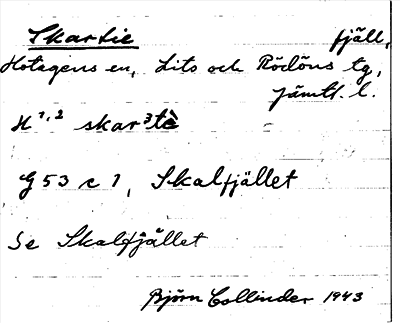 Skartie fjäll,
Hotagens sn, Lits och Rödöns tg,
Jämtl. l.
H 1,2 skar3tè
G 53 c 1, Skalfjället
Se Skalfjället
Björn Collinder 1943